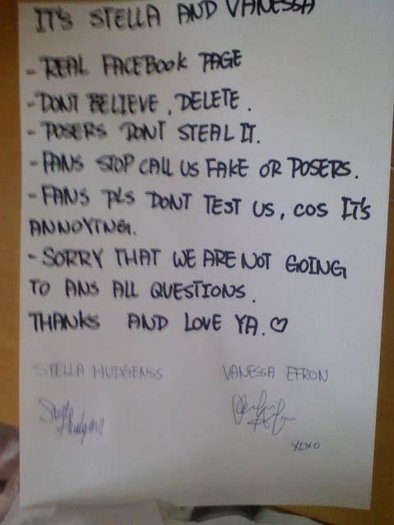 IT'S STELLA AND VANESSA
- REAL FACEBOOK PAGE
- DONT BELIEVE, DELETE.
- POSERS DONT STEAL IT.
- FANS STOP CALL US FAKE OR POSERS.
- FANS PLS DONT TEST US, COS IT'S
ANNOYING.
- SORRY THAT WE ARE NOT GOING
TO ANS ALL QUESTIONS.
THANKS AND LOVE YA. ♡
STELLA HUDGENSS VANESSA EFRON
Stella Hudgens
XOXO